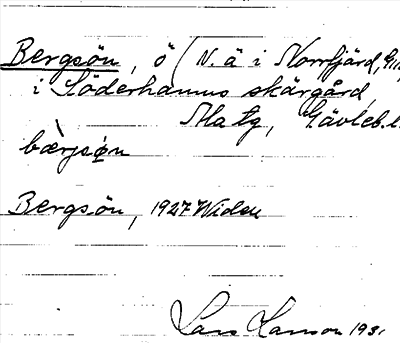 Bergsön, ö (N. ä i Norrfjärd,
i Söderhamns skärgård,
Ma tg, Gävleb. l.
bærjsøn
Bergsön, 1927 Widen
Lars Hanson 1931